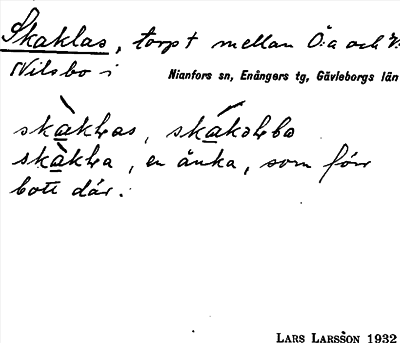 Skaklas, torpt mellan Ö:a och V:
Nilsbo i Nianfors sn, Enångers tg, Gävleborgs län
bott där.
skàkłas, skákəłbo
skàkła, en änka, som förr
LARS LARSSON 1932